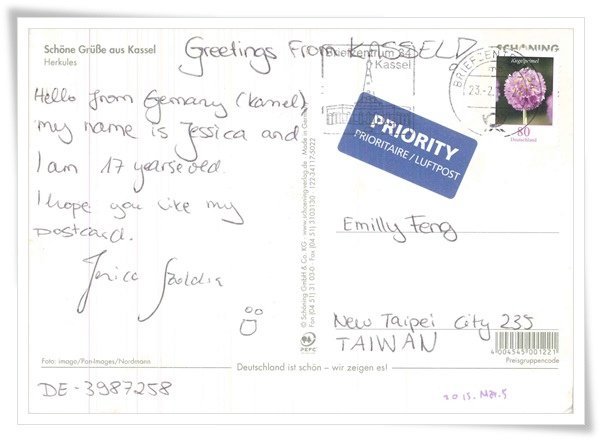 Schöne Grüße aus Kassel
Herkules
Greetings From KASSEL :D
Hello from Germany (Kassel)
my name is Jessica and
I am 17 years old.
I hope you like my
postcard.
Jessica
Foto: imago/Pan-Images/Nordmann
DE-3987258
© Schöning GmbH & Co. KG · www.schoening-verlag.de · Made in Germany
Fon (04 51) 31 03-0 · Fax (04 51) 3103130 · 122-34117-5022
PEFC
Deutschland ist schön – wir zeigen es!
Briefzentrum 34
Kassel
BRIEFZENTR
23.-2.
SCHÖNING
Kugelprimel
80
Deutschland
PRIORITY
PRIORITAIRE / LUFTPOST
Emilly Feng
New Taipei City 235
TAIWAN
4 004545 001221
Preisgruppencode
2015. Mar. 5